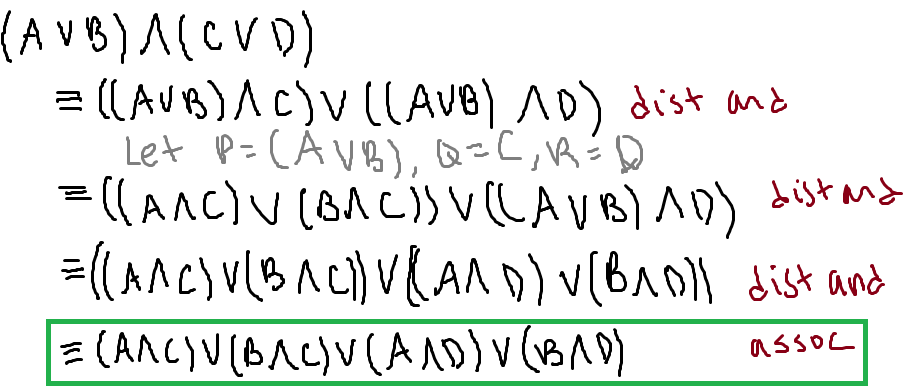 (A∨B)∧(C∨D)
≡((A∨B)∧C)∨((A∨B)∧D) dist and
Let P=(A∨B), Q=C, R=D
≡((A∧C)∨(B∧C))∨((A∨B)∧D) dist and
≡((A∧C)∨(B∧C))∨((A∧D)∨(B∧D)) dist and
≡(A∧C)∨(B∧C)∨(A∧D)∨(B∧D) assoc